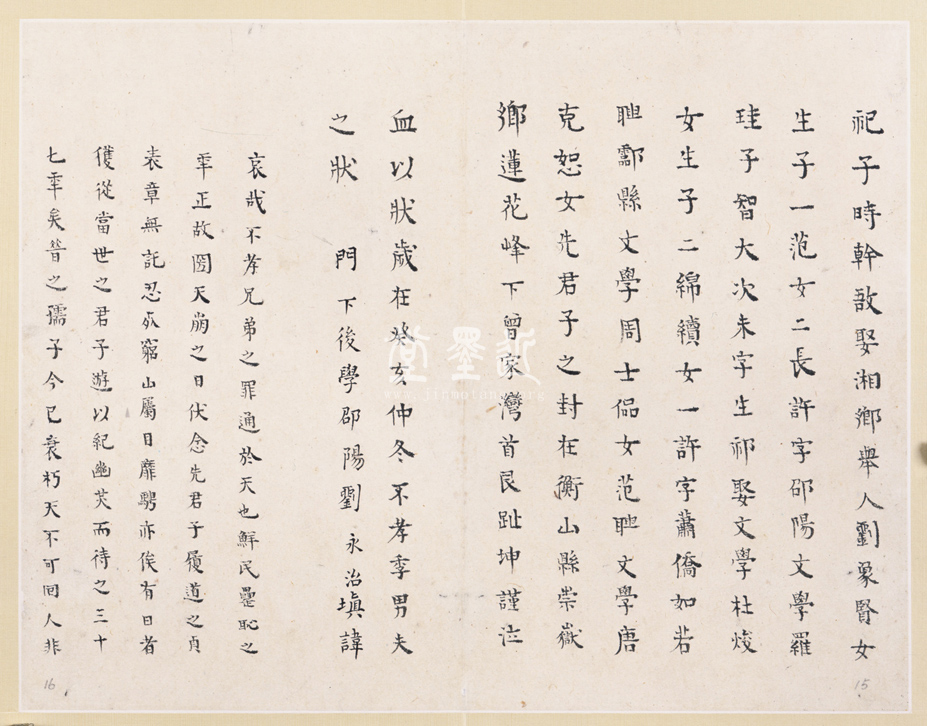 祀子時幹敔娶湘鄉舉人劉象賢女
生子一范女二長許字邵陽文學羅
珪子智大次未字生祁娶文學杜焌
女生子二綿纘女一許字蕭僑如若
聃酃縣文學周士侃女范聃文學唐
克恕女先君子之封在衡山縣崇嶽
鄉蓮花峰下曾家灣首艮趾坤謹泣
血以狀歲在癸亥仲冬不孝季男夫
之狀 門下後學邵陽劉永治塡諱
哀哉不孝兄弟之罪通於天也鮮民罍恥之
秊正故國天崩之日伏念先君子履道之貞
表章無託忍死窮山屬目靡騁亦俟有日者
獲從當世之君子遊以紀幽芡而待之三十
七秊矣昔之孺子今已衰朽天不可回人非
15
16
近墨堂
www.jinmotang.org